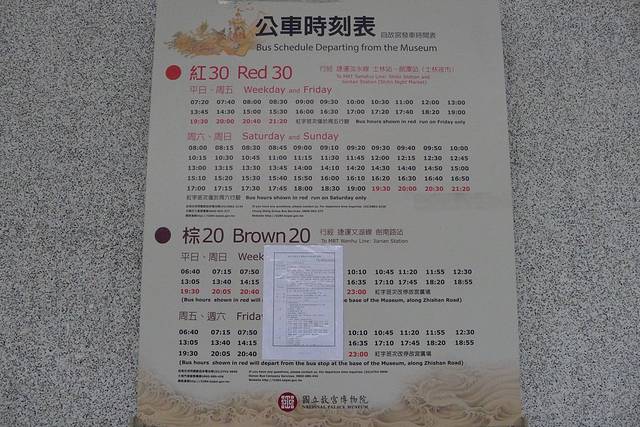 公車時刻表 自故宮發車時間表
Bus Schedule Departing from the Museum
紅30 Red 30 行經 捷運淡水線 士林站、劍潭站 (士林夜市)
To MRT Tamshui Line: Shilin Station and
Jiantan Station (Shilin Night Market)
平日、周五 Weekday and Friday
07:20 07:40 08:00 08:30 09:00 09:30 10:00 10:30 11:00 12:00 13:00
13:45 14:30 15:00 15:30 16:00 16:30 17:00 17:20 17:40 18:20 19:00
19:30 20:00 20:40 21:20 紅字班次僅於周五行駛 Bus hours shown in red run on Friday only
周六、周日 Saturday and Sunday
08:00 08:15 08:30 08:45 09:00 09:10 09:20 09:30 09:40 09:50 10:00
10:15 10:30 10:45 11:00 11:15 11:30 11:45 12:00 12:15 12:30 12:45
13:00 13:15 13:30 13:45 14:00 14:10 14:20 14:30 14:40 14:50 15:00
15:10 15:20 15:30 15:40 15:50 16:00 16:10 16:20 16:30 16:40 16:50
17:00 17:15 17:30 17:45 18:00 18:30 19:00 19:30 20:00 20:30 21:20
紅字班次僅於周六行駛 Bus hours shown in red run on Saturday only
棕20 Brown 20 行經 捷運文湖線 劍南路站
To MRT Wenhu Line: Jianan Station
平日、周日 Week
06:40 07:15 07:50 10:10 10:45 11:20 11:55 12:30
13:05 13:40 14:15 16:35 17:10 17:45 18:20 18:55
19:30 20:05 20:40 23:00 紅字班次改停故宮廣場
(Bus hours shown in red will the base of the Museum, along Zhishan Road)
周五、週六 Frida
06:40 07:15 07:50 10:10 10:45 11:20 11:55 12:30
13:05 13:40 14:15 16:35 17:10 17:45 18:20 18:55
19:30 20:05 20:40 23:00 紅字班次改停故宮廣場
(Bus hours shown in red will depart from the bus stop at the base of the Museum, along Zhishan Road)
國立故宮博物院
NATIONAL PALACE MUSEUM